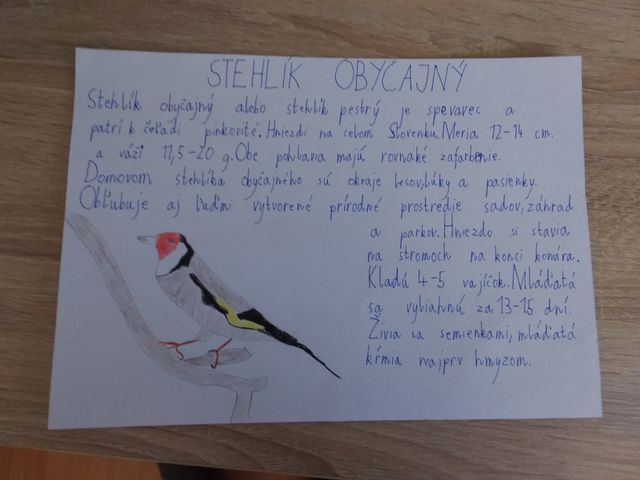 STEHLÍK OBYČAJNÝ
Stehlík obyčajný alebo stehlík pestrý je spevavec a
patrí k čeľadi pinkovité. Hniezdi na celom Slovenku. Meria 12-14 cm.
a váži 11,5-20 g. Obe pohlavia majú rovnaké zafarbenie.
Domovom stehlíka obyčajného sú okraje lesov, lúky a pasienky.
Obľubuje aj ľuďmi vytvorené prírodné prostredje sadov, záhrad
a parkov. Hniezdo si stavia
na stromoch na konci konára.
Kladú 4-5 vajíčok. Mláďatá
sa vyliahnú za 13-15 dní.
Živia sa semienkami, mláďatá
kŕmia najprv hmyzom.